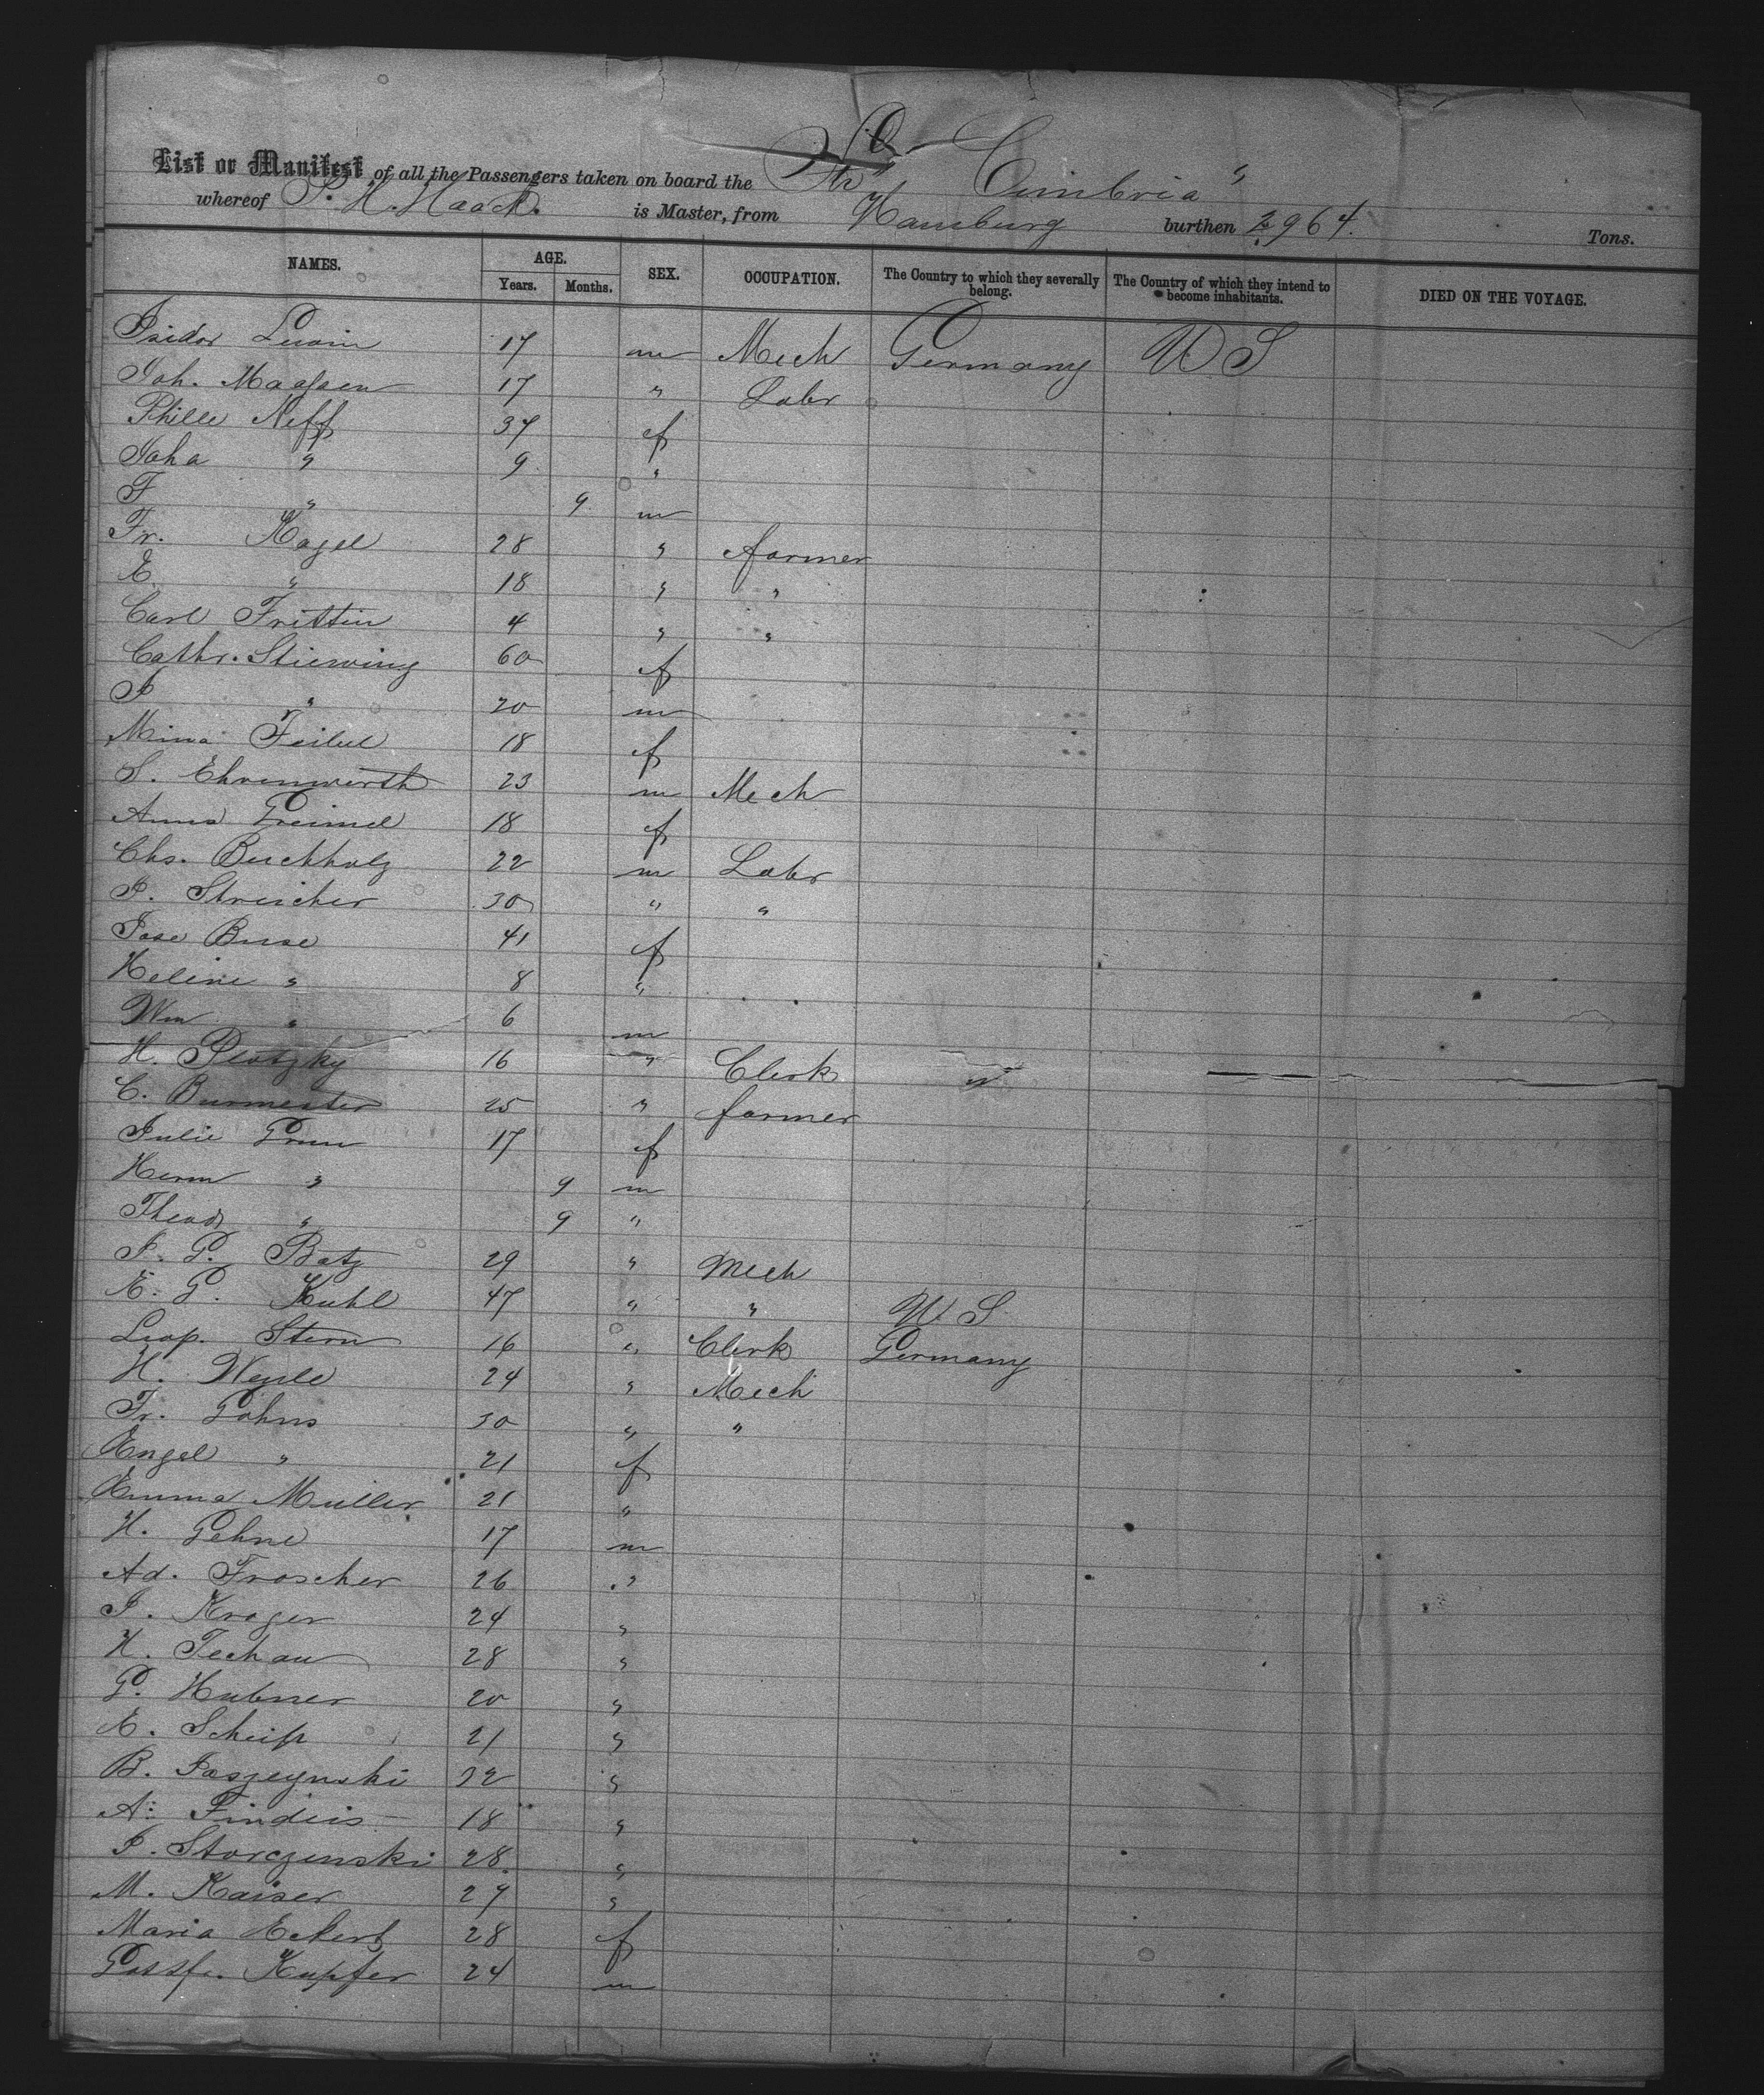 List or Manifest of all the Passengers taken on board the Str "Cimbria"
whereof P. H. Haack. is Master, from Hamburg burthen 2964. Tons.
NAMES. AGE. Years. Months. SEX. OCCUPATION. The Country to which they severally belong. The Country of which they intend to become inhabitants. DIED ON THE VOYAGE.
Isidor Lewin 17 m Mech Germany U S
Joh. Maassen 17 " Labr
Phille Neff 37 f
Joha " 9 "
F " 9 m
Fr. Kagel 28 " farmer
E. " 18 " "
Carl Frittin 4 " "
Cathr. Stiewing 60 f
J " 20 m
Mina Feibel 18 f
S. Ehrenwerth 23 m Mech
Anna Greimel 18 f
Chs. Buchholz 22 m Labr
J. Streicher 30 " "
Jose Buse 41 f
Helene " 8 "
Wm " 6 m
H. Plotzky 16 " Clerk "
C. Burmester 25 " farmer
Julie Grun 17 f
Herm " 9 m
Theod " 9 "
F. G. Batz 29 " Mech
E. G. Kuhl 47 " " U S
Leop. Stern 16 " Clerk Germany
H. Weyle 24 " Mech
Fr. Gohns 30 " "
Engel " 21 f
Emma Muller 21 "
H. Gehne 17 m
Ad. Froscher 26 "
J. Kroger 24 "
H. Techau 28 "
G. Hubner 20 "
E. Scheip 21 "
B. 32 "
A. Findeis 18 "
J. Storczenski 28 "
M. Kaiser 29 "
Maria Eckert 28 f
Gottfr. Kupfer 24 m